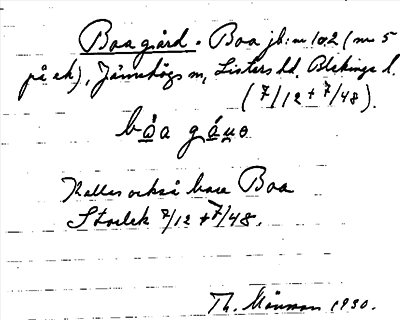 Boa gård. Boa jb: nr 1o2 (nr 5
på ek), Jämshögs sn, Listers hd. Blekinge l.
(7/12 + 7/48).
bo̲a gá̲u̲o
Kallas också bara Boa
Storlek 7/12 + 7/48.
Th. Månsson 1930.